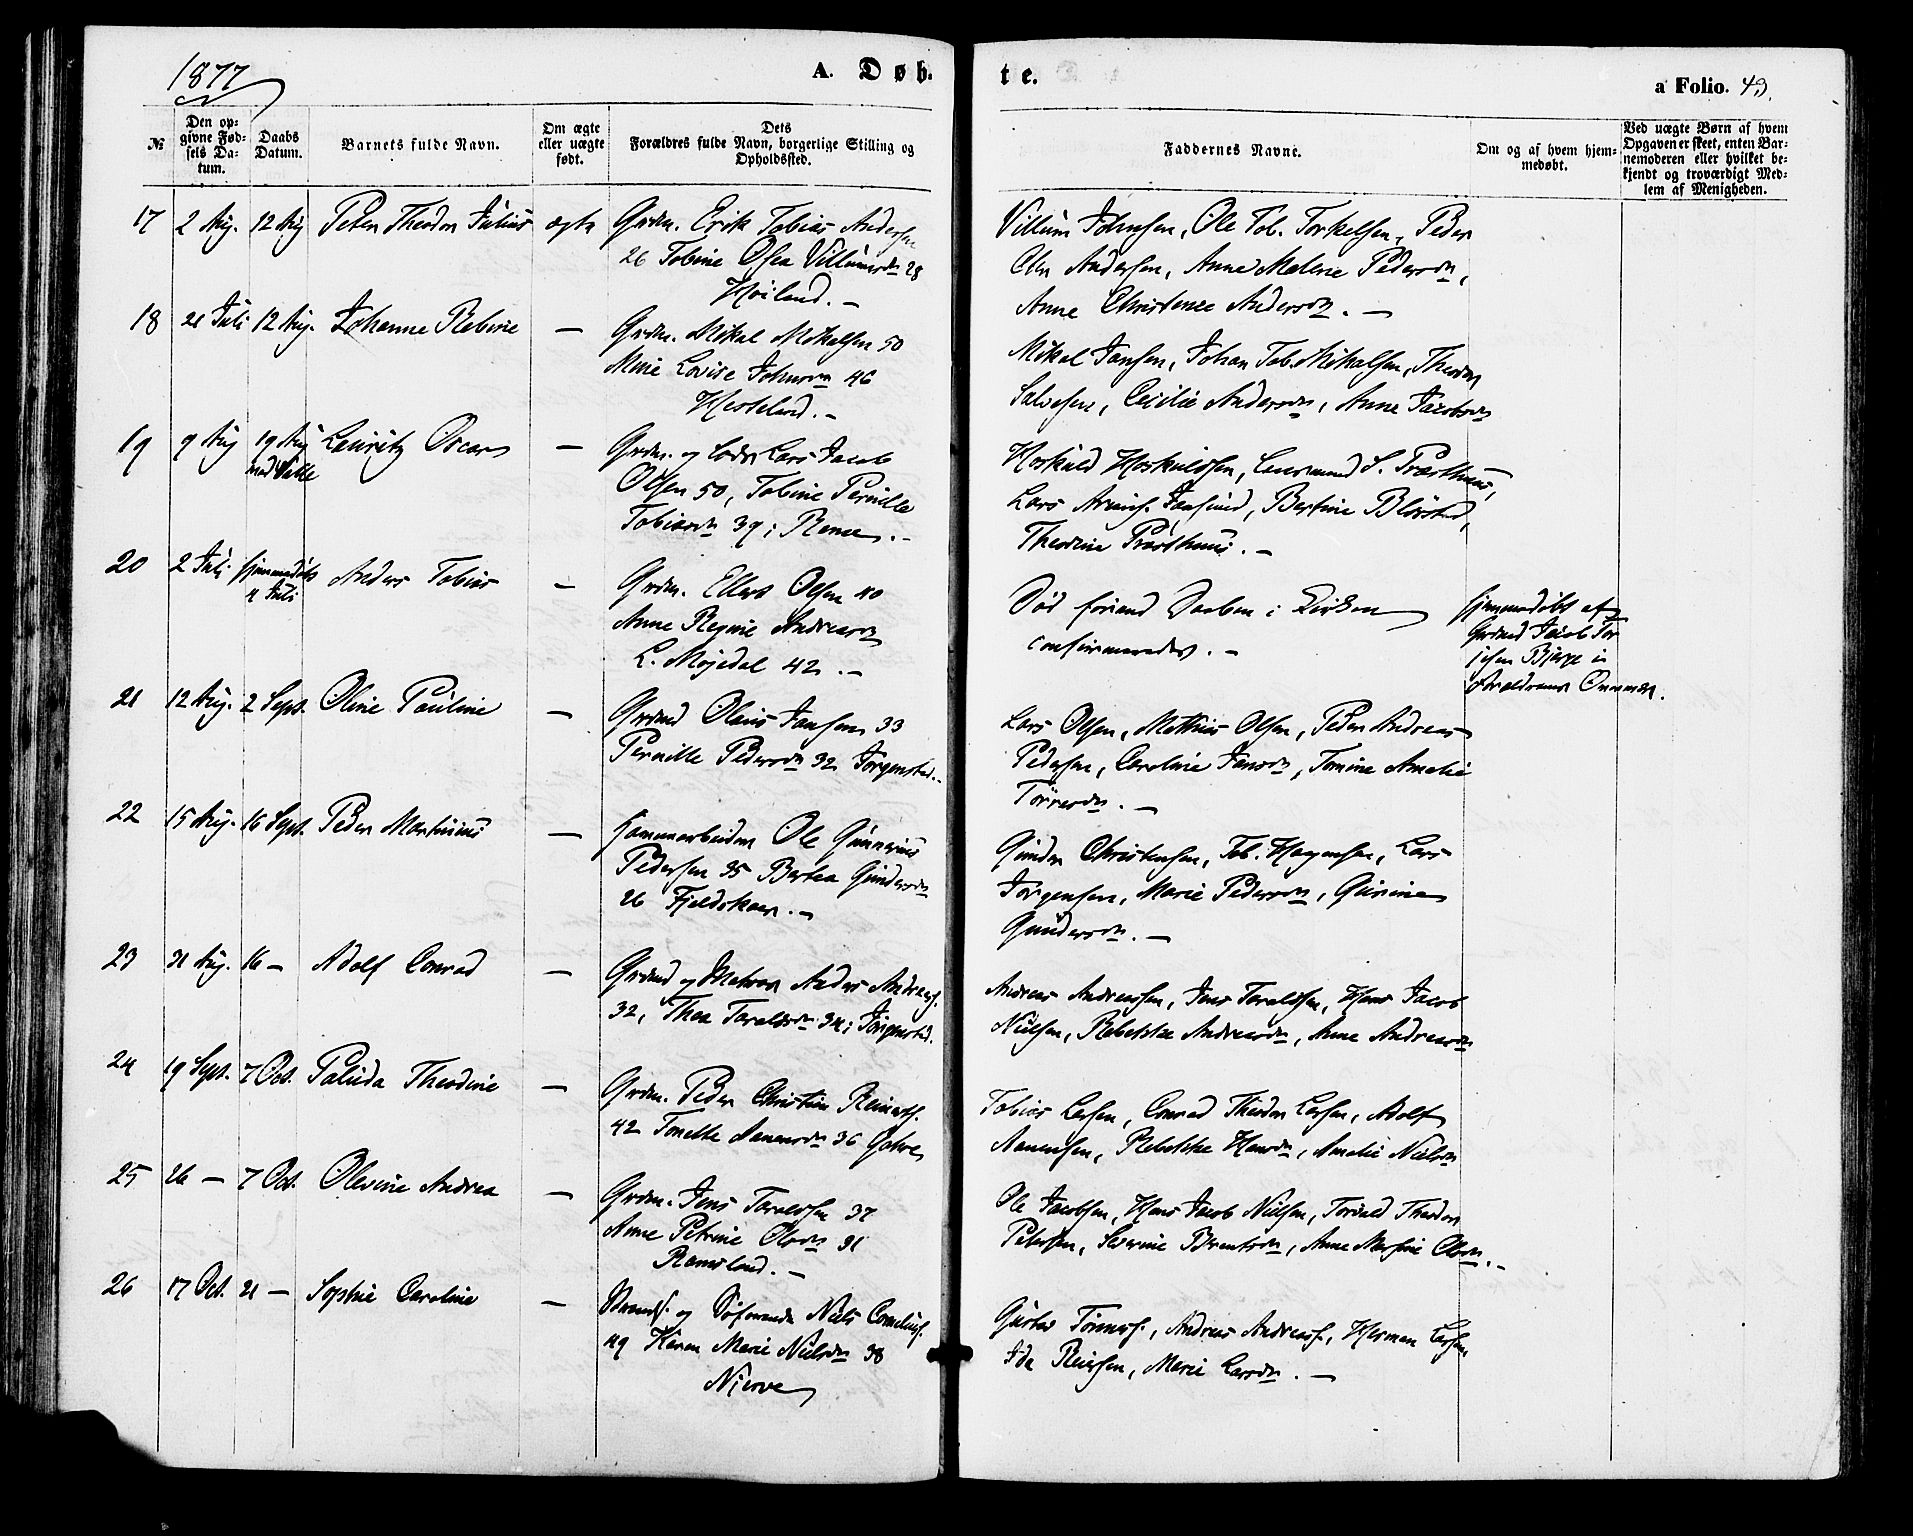 1877
A. Døb-
te.
a Folio. 43.
№
Den op-
givne Fød-
sels Da-
tum.
Daabs
Datum.
Barnets fulde Navn.
Om ægte
eller uægte
født.
Dets
Forældres fulde Navn, borgerlige Stilling og
Opholdssted.
Faddernes Navne.
Om og af hvem hjem-
medøbt.
Ved uægte Børn af hvem
Opgaven er skeet, enten Bar-
nemoderen eller hvilket be-
kjendt og troværdigt Med-
lem af Menigheden.
17 2 Aug. 12 Aug Peter Theodor Julius ægte
Grdm. Erik Tobias Andersen
26 Tobine Olea Villumsdr 28
Høiland. -
Villum Johnsen, Ole Tob. Torkelsen, Peder
Andersen, Anne Malene Pedersdr,
Anne Christence Andersdr. -
18 21 Juli 12 Aug. Johanne Rebine -
Grdm. Mikal Mikalsen 50
Mine Lovise Johnsdr 46
Hesteland. -
Mikal Jansen, Johan Tob. Mikalsen, Theodor
Salvesen, Cecilie Andersdr, Anne Jacobsdr
19 9 Aug 19 Aug Lauritz Oscar -
Grdm. og Lods Lars Jacob
Olsen 50, Tobine Pernille
Tobiasdr 39; -
Hoskuld Hoskuldsen, Lensmand S. Præsthuus,
Lars Jaasund, Bertine
Theodine Præsthuus. -
20 2 Juli hjemmedøbt
4 Juli
Anders Tobias -
Grdm. Ellert Olsen 40
Anne Regine Andreasdr
L. Møjedal 42. -
Død førend Daaben i Kirken
confirmeredes. -
hjemmedøbt af
Grdmd Jacob Tor
jesen i
21 12 Aug. 2 Sept. Oline Pauline -
Grdmd Olaus Jansen 33
Pernille Pedersdr 32 Jørgenstad. -
Lars Olsen, Mathias Olsen, Peder Andreas
Pedersen, Caroline Jansdr, Tomine Amalie
Tørresdr. -
22 15 Aug. 16 Sept. Peder Martinius -
Ole Gunnerius
Pedersen 35 Bertea Gundersdr
26 Fjeldskaar. -
Gunder Christensen, Tob. Haagensen, Lars
Jørgensen, Marie Pedersdr, Gurine
Gundersdr. -
23 31 Aug. 16 - Adolf Conrad -
Grdmd og Matros Anders Andreass.
32, Thea Taraldsdr 34; Jørgenstad.
Andreas Andreassen, Jens Taraldsen, Hans Jacob
Nielsen, Rebekka Andreasdr, Anne Andreasdr
24 19 Sept. 7 Oct. Palida Theodine -
Grdm. Peder Christian Reiners.
42 Tonette Aanensdr 36
Tobias Larsen, Conrad Theodor Larsen, Adolf
Aanensen, Rebekka Hansdr, Amalie Nielsdr
25 26 - 7 Oct. Olevine Andrea -
Grdm. Jens Taraldsen 37
Anne Petrine Olsdr 31
Ramsland. -
Ole Jacobsen, Hans Jacob Nielsen, Torvald Theodor
Petersen, Severine Berentsdr, Anne Martine Olsdr. -
26 17 Oct. 21 - Sophie Caroline -
og Søfarende Niels Cornelius.
49 Karen Marie Nielsdr 38
Njerve
Gustav Tønnes., Andreas Andreass., Herman Larsen
Ida Reiersen, Marie Larsdr. -